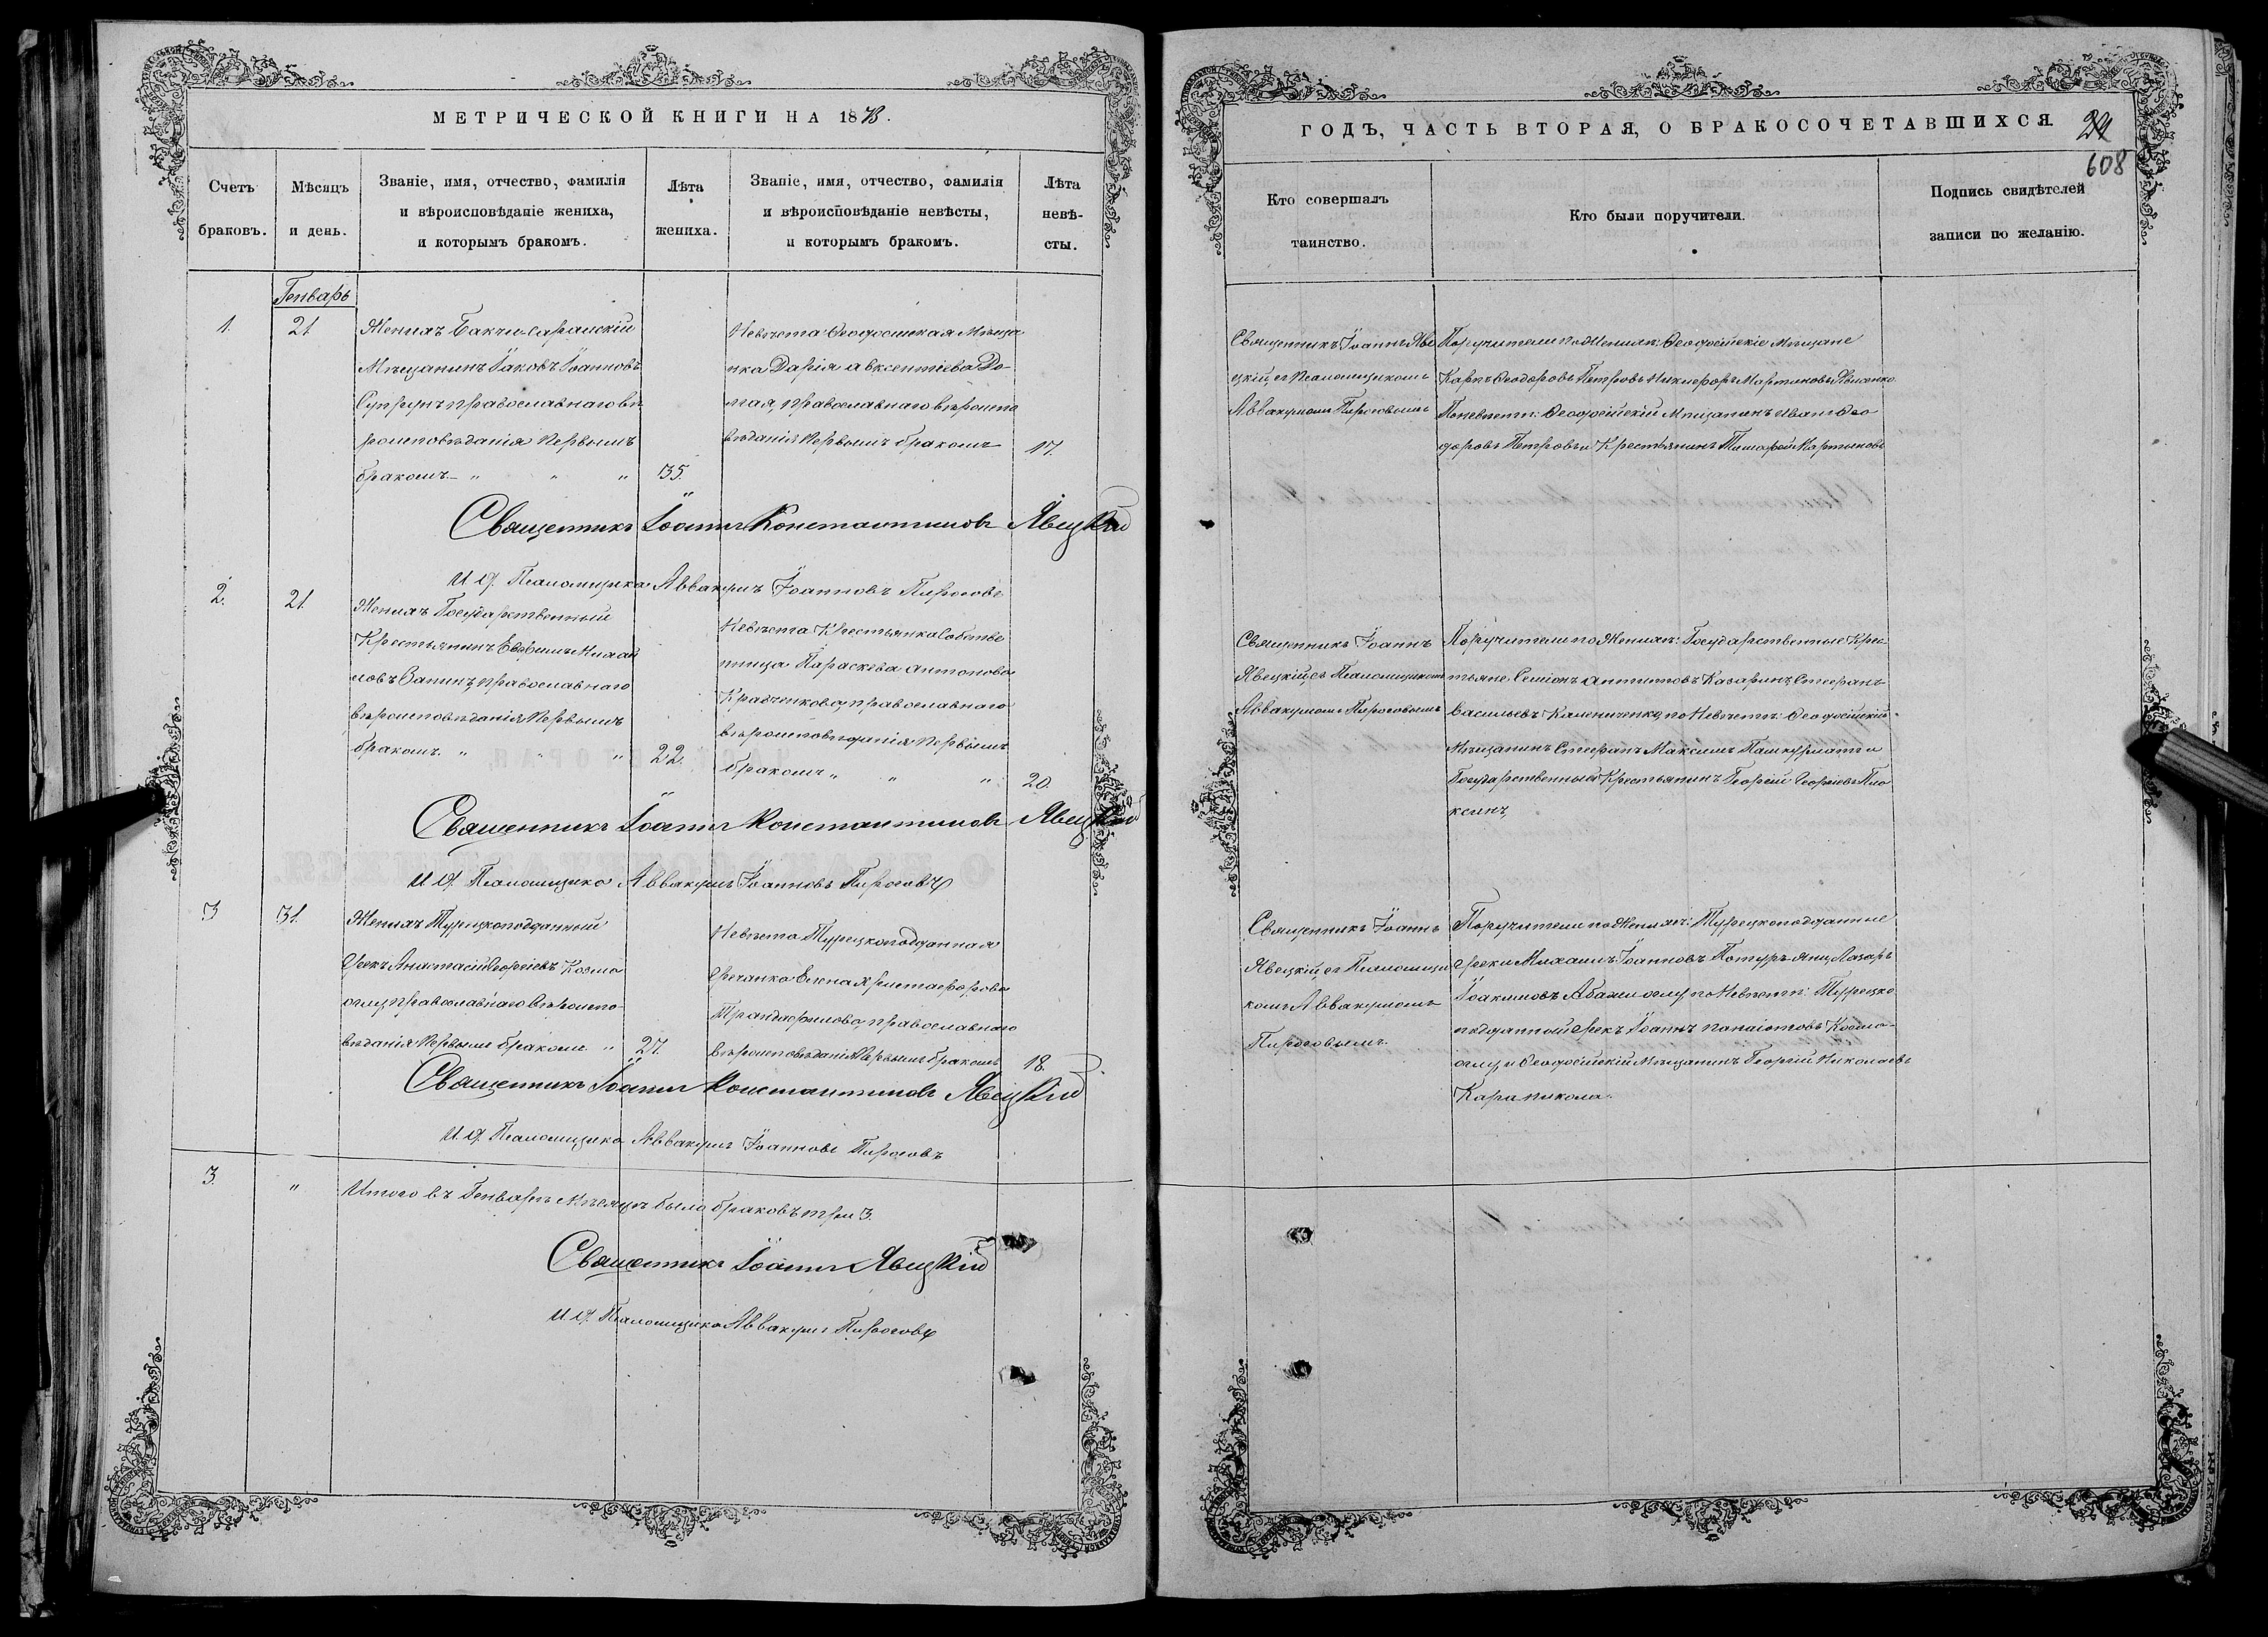 МЕТРИЧЕСКОЙ КНИГИ НА 1873.
Счетъ браковъ.
Мѣсяцъ и день.
Званіе, имя, отчество, фамилія и вѣроисповѣданіе жениха, и которымъ бракомъ.
Лѣта жениха.
Званіе, имя, отчество, фамилія и вѣроисповѣданіе невѣсты, и которымъ бракомъ.
Лѣта невѣ-
сты.
Генварь
1.
21
Женихъ Бакчи-сарайскій
Мѣщанинъ Іаковъ Іоанновъ
православнаго вѣ
роисповѣданія первымъ
бракомъ „ „ „
35.
Невѣста Ѳеодосійская Мѣща
нка Дарія авксентіева До-
лгая, православнаго вѣроиспо
вѣданія первымъ бракомъ
17.
Священникъ Іоаннъ Константиновъ Явецкій
И. Д. Псаломщика Аввакумъ Іоанновъ Пироговъ
2.
21.
Женихъ Государственный
Крестьянинъ Евфимъ Михаи
ловъ Запинъ, православнаго
вѣроисповѣданія первымъ
бракомъ. „ „ „
22.
Невѣста Крестьянка Собстве
нница Параскева антонова
Кравченкова, православнаго
вѣроисповѣданія первымъ
бракомъ „ „ „
20.
Священникъ Іоаннъ Константиновъ Явецкій
И. Д. Псаломщика Аввакумъ Іоанновъ Пироговъ
3
31.
Женихъ Турецкоподданный
Грекъ Анастасій Георгіевъ Козма
оглу, православнаго вѣроиспо-
вѣданія первымъ бракомъ „
27.
Невѣста Турецкоподданная
Гречанка Елена Христофорова
Трандафилова, православнаго
вѣроисповѣданія первымъ бракомъ
18.
Священникъ Іоаннъ Константиновъ Явецкій
И. Д. Псаломщика Аввакумъ Іоанновъ Пироговъ
3.
„
Итого въ Генварѣ мѣсяцѣ было браковъ три 3.
Священникъ Іоаннъ Явецкій
И. Д. Псаломщика Аввакумъ Пироговъ
ГОДЪ, ЧАСТЬ ВТОРАЯ, О БРАКОСОЧЕТАВШИХСЯ.
608
Кто совершалъ таинство.
Кто были поручители.
Подпись свидѣтелей записи по желанію.
Священникъ Іоаннъ Яве
цкій, съ Псаломщикомъ
Аввакумомъ Пироговымъ
Поручители по Женихѣ: Ѳеодосійскіе Мѣщане
Карпъ Ѳеодоровъ Петровъ Никифоръ Мартиновъ
По невѣстѣ: Ѳеодосійскій Мѣщанинъ Иванъ Ѳео
доровъ Петровъ и Крестьянинъ Тимофей Мартыновъ
Священникъ Іоаннъ
Явецкій, съ Псаломщикомъ
Аввакумомъ Пироговымъ
Поручители по Женихѣ: Государственные Крес
тьяне, Симіонъ антиповъ Казаринъ, Стефанъ
Васильевъ Калениченко, по Невѣстѣ: Ѳеодосійскій
Мѣщанинъ Стефанъ Максимъ и
Государственный Крестьянинъ Георгій Георгіевъ Пло
ксинъ,
Священникъ Іоаннъ
Явецкій, съ Псаломщи
комъ Аввакумомъ
Пироговымъ.
Поручители по Женихѣ: Турецкоподданные
Греки Михаилъ Іоанновъ Лазарь
Іоакимовъ по Невѣстѣ: Турецко
подданный Грекъ Іоаннъ панаіотовъ Козма-
оглу, и Ѳеодосійскій Мѣщанинъ Георгій Николаевъ
Кара никола.